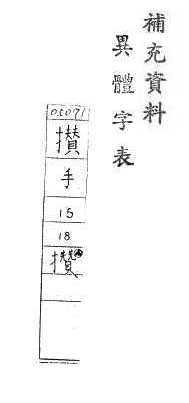 補充資料
異體字表
05071
攢
手
15
18
攢